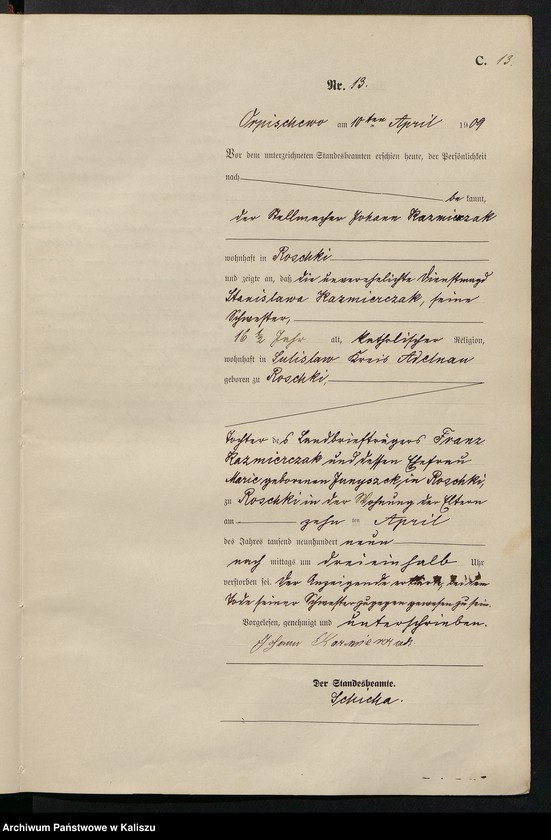 C. 13.
Nr. 13.
Orpischewo am 10ten April 1909
Vor dem unterzeichneten Standesbeamten erschien heute, der Persönlichkeit
nach
be kannt,
der Stellmacher Johann Kazmierczak
wohnhaft in Roschki
und zeigte an, daß die unverehelichte Dienstmagd
Stanislawa Kazmierczak, seine
Schwester,
16 1/2 Jahr alt, katholischer Religion,
wohnhaft in Sulislaw Kreis Adelnau
geboren zu Roschki,
Tochter des Landbriefträgers Franz
Kazmierczak und dessen Ehefrau
geborenen in Roschki,
zu Roschki in der Wohnung der Eltern
am zehn ten April
des Jahres tausend neunhundert neun
nach mittags um drei ein halb Uhr
verstorben sei. Der Anzeigende erklärte, bei dem
Tode seiner Schwester zugegen gewesen zu sein.
Vorgelesen, genehmigt und unterschrieben.
Johann
Der Standesbeamte.
Schicha.
Archiwum Państwowe w Kaliszu